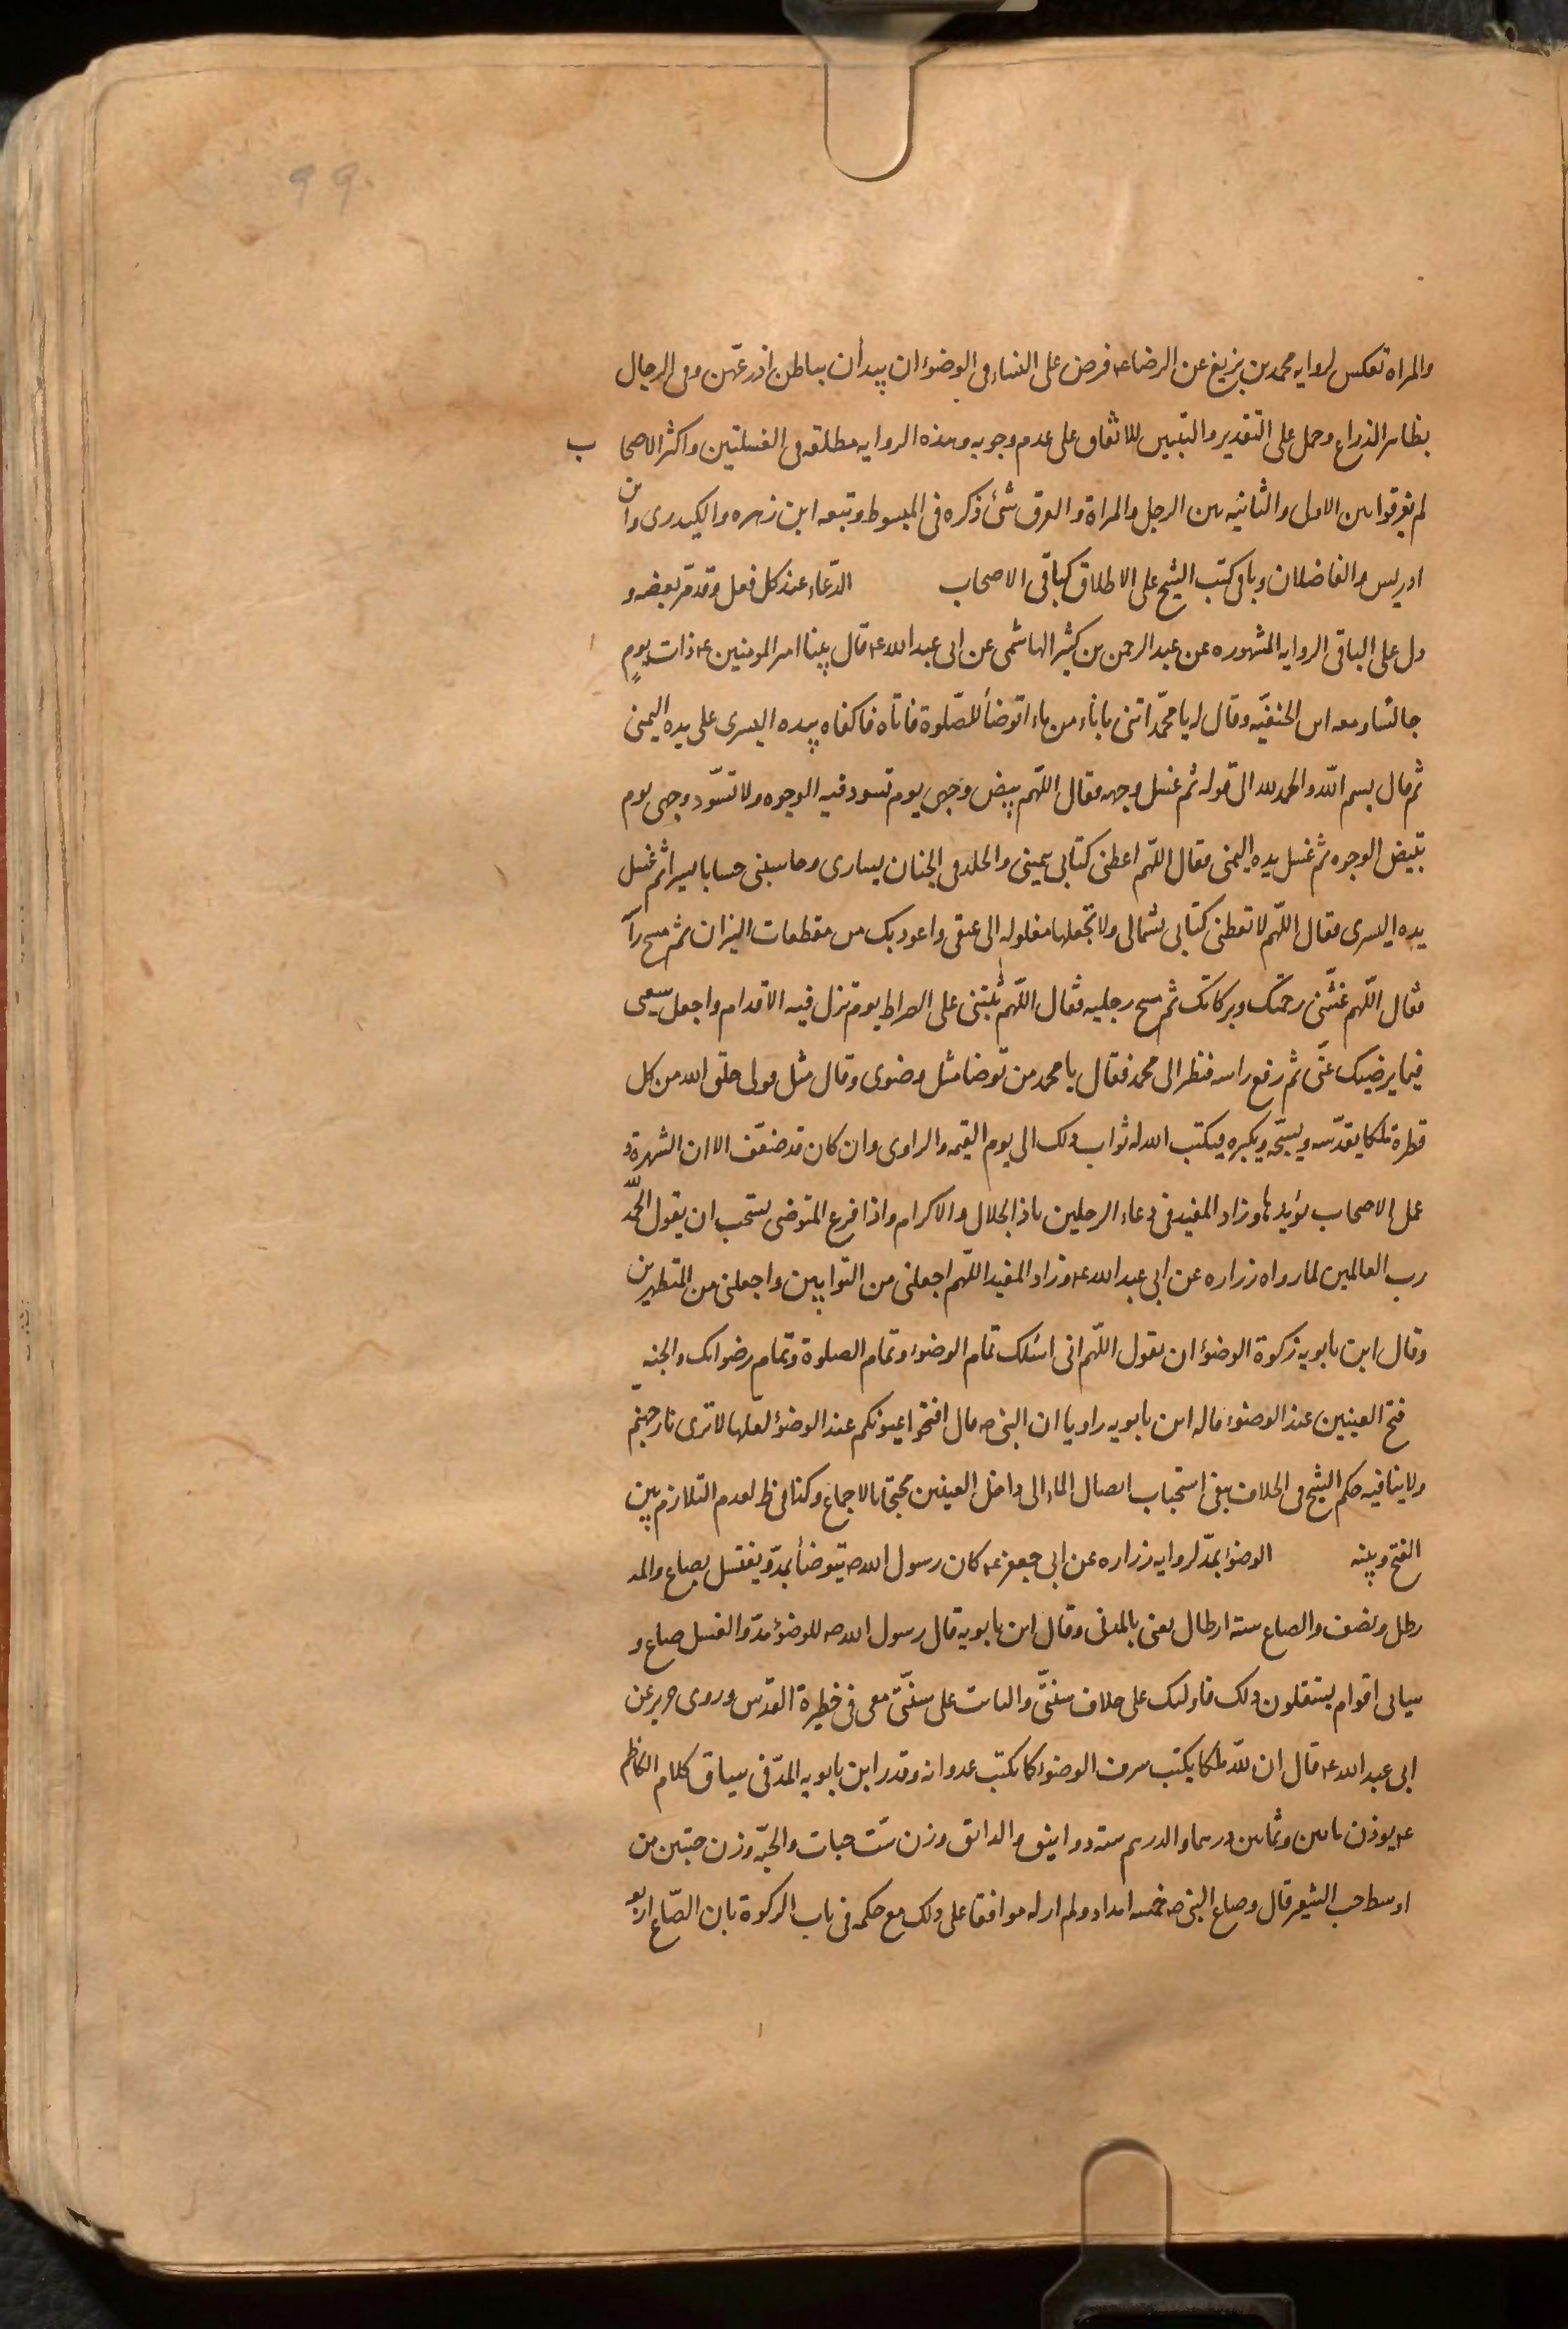 99
والمراه تعكس لروايه محمد بن بزيغ عن الرضا عه فرض على النساء فى الوضوء ان يبدأن بباطن اذرعّهن وفى الرجال
بظاهر الذراع وحمل على التقدير والتبيين للاتفاق على عدم وجوبه وهذه الروايه مطلقه فى الغسلتين واكثر الاصحا ب
لم يفرقوا بين الاولى والثانيه بين الرجل والمراة والفرق شئ ذكره فى المبسوط وتبعه ابن زهره والكيدرى وابن
ادريس والفاضلان وباقى كتب الشيخ على الاطلاق كباقى الاصحاب الدّعاء عند كل فعل وقد مرّ بعضه و
دل على الباقى الروايه المشهوره عن عبد الرحمن بن كثير الهاشمى عن ابى عبد الله عه قال بينا امير المومنين عه ذات يومٍ
جالسا ومعه ابن الحنفيّه وقال له يا محمّد اتنى باناء من ماء اتوضأ للصّلوة فاتاه فاكفاه بيده اليسرى على يده اليمنى
ثم قال بسم الله والحمد لله الى قوله ثم غسل وجهه فقال اللهّم بيض وجهى يوم تسود فيه الوجوه ولا تسّود وجهى يوم
تبيض الوجوه ثم غسل يده اليمنى فقال اللهّم اعطنى كتابى بيمينى والخلد فى الجنان بيسارى وحاسبنى حسابا يسيرا ثم غسل
يده اليسرى فقال اللهّم لا تعطنى كتابى بشمالى ولا تجعلها مغلوله الى عنقى واعوذ بك من مقطعات النيران ثم مسح رأ
فقال اللهّم غشّنى رحمتك وبركاتك ثم مسح رجليه فقال اللهّم ثبّتنى على الصراط يوم تزل فيه الاقدام واجعل سعيى
فيما يرضيك عنّى ثم رفع راسه فنظر الى محمد فقال يا محمد من توضا مثل وضوى وقال مثل قولى خلق الله من كل
قطرة ملكا يقدّسه ويسبّحه ويكبره فيكتب الله له ثواب ذلك الى يوم القيمه والراوى وان كان قد ضعّف الا ان الشهرة و
عمل الاصحاب يؤيدها وزاد المفيد فى دعاء الرجلين ياذا الجلال والاكرام واذا فرغ المتوضى يستحب ان يقول الحمّد لله
رب العالمين لما رواه زراره عن ابى عبد الله عه وزاد المفيد اللهّم اجعلنى من التوابين واجعلنى من المتطهرين
وقال ابن بابويه زكوة الوضوء ان يقول اللهّم انى اسئلك تمام الوضوء وتمام الصلوة وتمام رضوانك والجنه
فتح العينين عند الوضوء قاله ابن بابويه راويا ان النبى صه قال افتحوا عيونكم عند الوضوء لعلّها لا ترى نار جهنم
ولا ينافيه حكم الشيخ فى الخلاف بنفى استحباب ايصال الماء الى داخل العينين محتجّا بالاجماع وكنا فى ظ لعدم التلازم بين
الفتح وبينه الوضوء بمدّ لروايه زراره عن ابى جعفر عه كان رسول الله صه يتوضأ بمدّ ويغتسل بصاع والمد
رطل ونصف والصاع سته ارطال يعنى بالمدنى وقال ابن بابويه قال رسول الله صه للوضوء مدّ والغسل صاع و
سياتى اقوام يستقلون ذلك فاولئك على خلاف سنتّى والثابت على سنتّى معى فى خطيرة القدس وروى حريز عن
ابى عبد الله عه قال ان للّه ملكا يكتب سرف الوضوء كما يكتب عدوانه وقدر ابن بابويه المدّ فى سياق كلام الكاظم
عه بوزن مائتين وثمانين درهما والدرهم سته دوانيق والدانق وزن ستّ حبات والحبّه وزن حبتين من
اوسط حب الشعير قال وصاع النبى صه خمسه امداد ولم ار له موافقا على ذلك مع حكمه فى باب الزكوة بان الصّاع اربعه